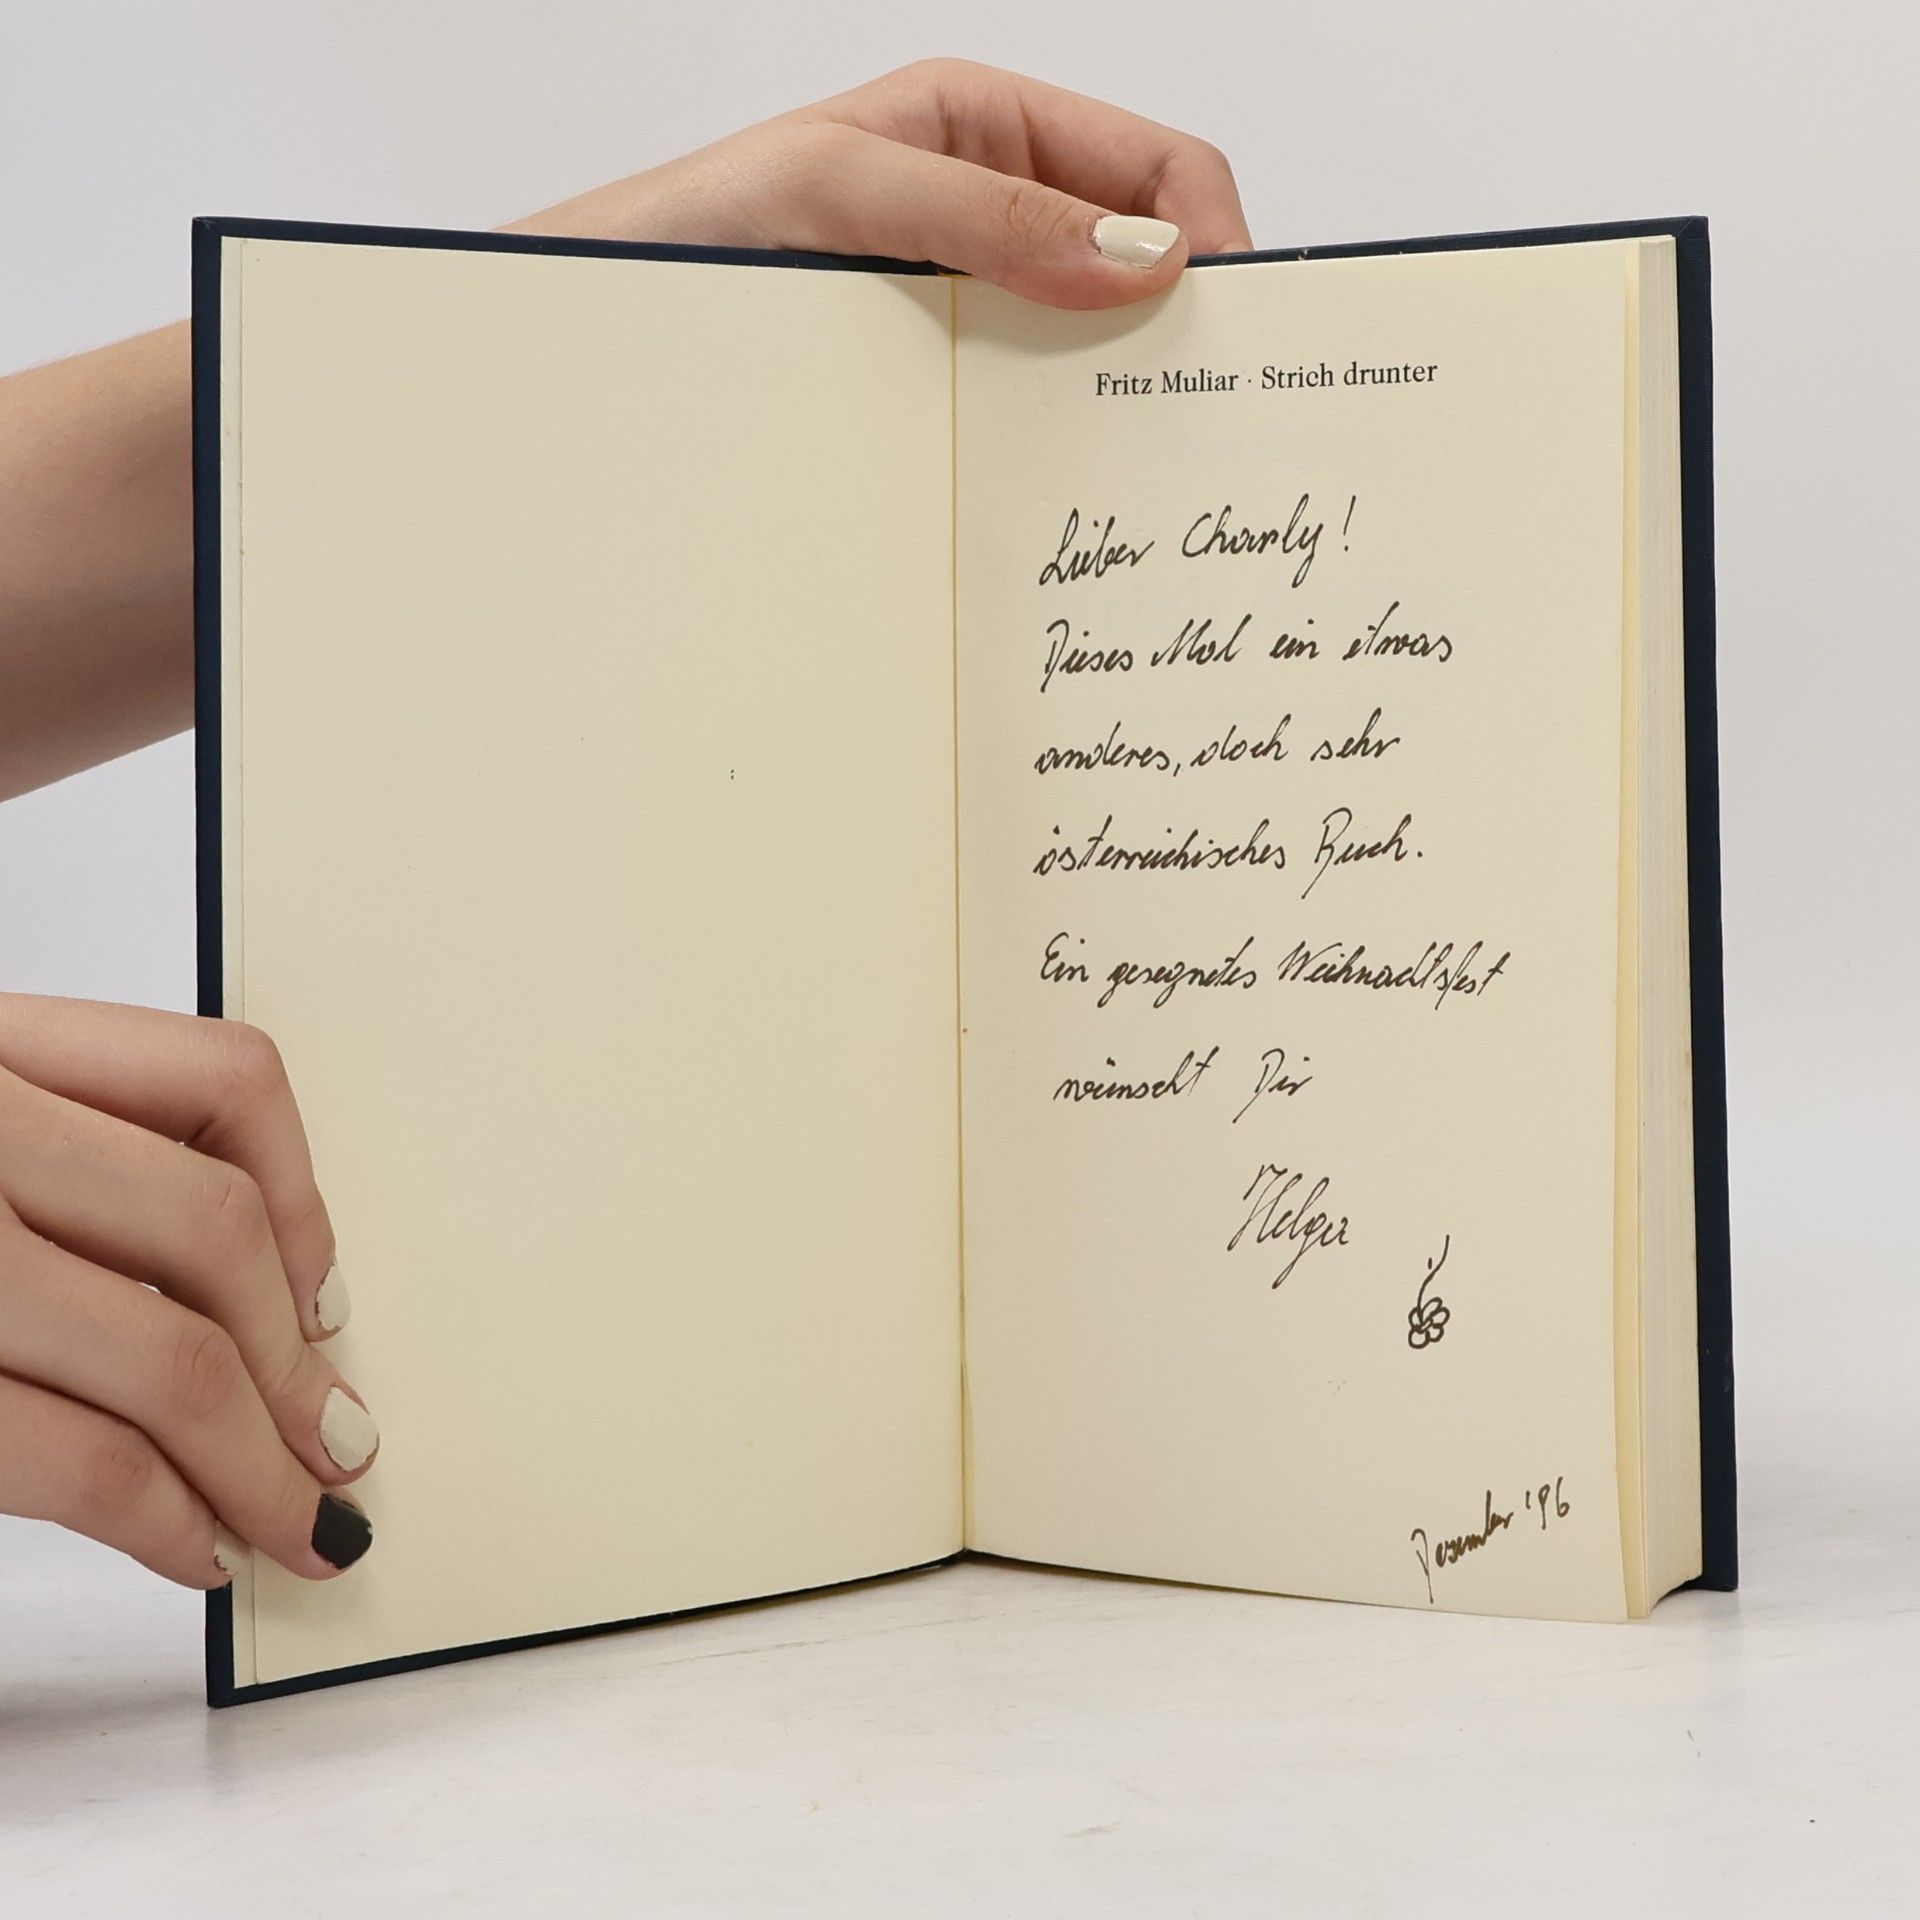 Fritz Muliar · Strich drunter
Lieber Charly!
Dieses Mal ein etwas
anderes, doch sehr
österreichisches Buch.
Ein gesegnetes Weihnachtsfest
wünscht Dir
Helga
Dezember '96